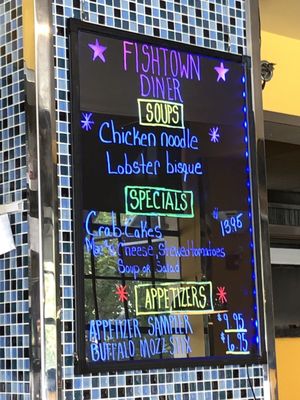 FISHTOWN
DINER
SOUPS
Chicken noodle
Lobster bisque
SPECIALS
Crab Cakes $13.95
Mac & Cheese, Stewed tomatoes
Soup or Salad
APPETIZERS
APPETIZER SAMPLER $9.95
BUFFALO MOZZ STIX $6.95